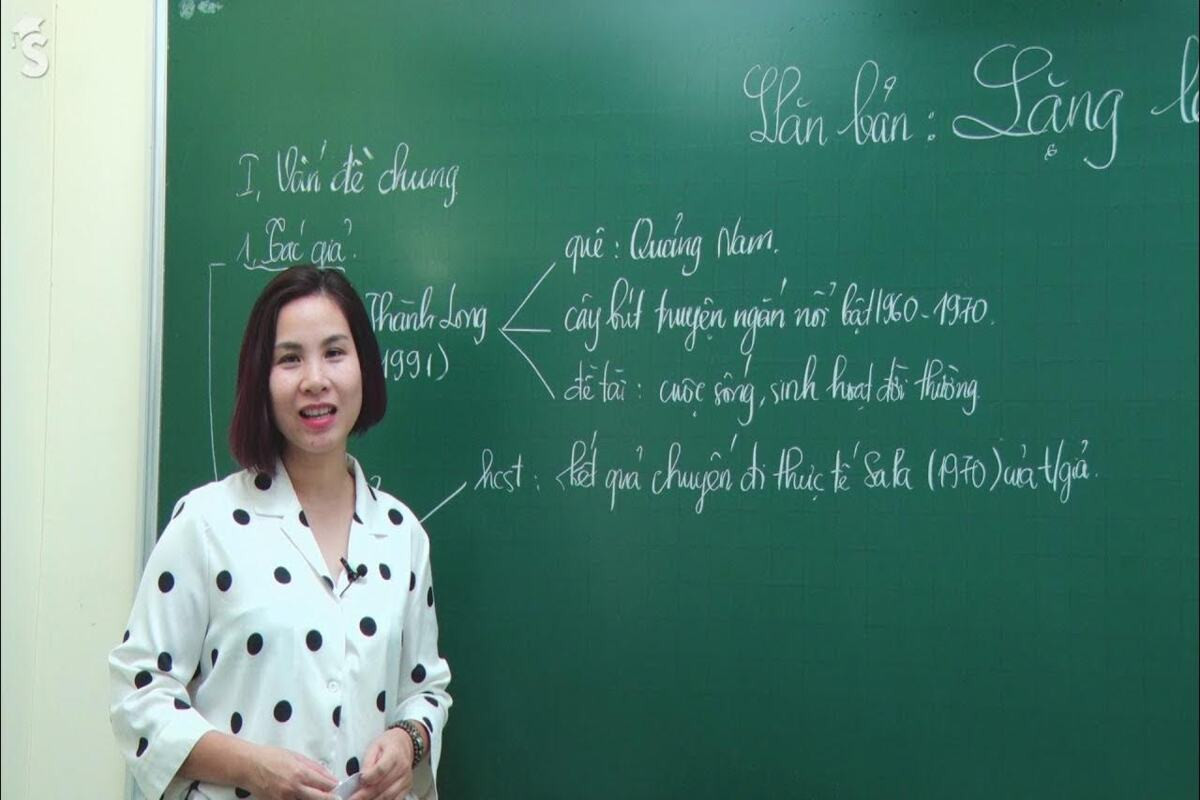 S
Văn bản: Lặng
I, Vấn đề chung
1, Tác giả.
Thành Long
1991)
quê: Quảng Nam.
cây bút truyện ngắn nổi bật 1960-1970.
đề tài: cuộc sống, sinh hoạt đời thường.
hcst: kết quả chuyến đi thực tế Sa Pa (1970) của t/giả.